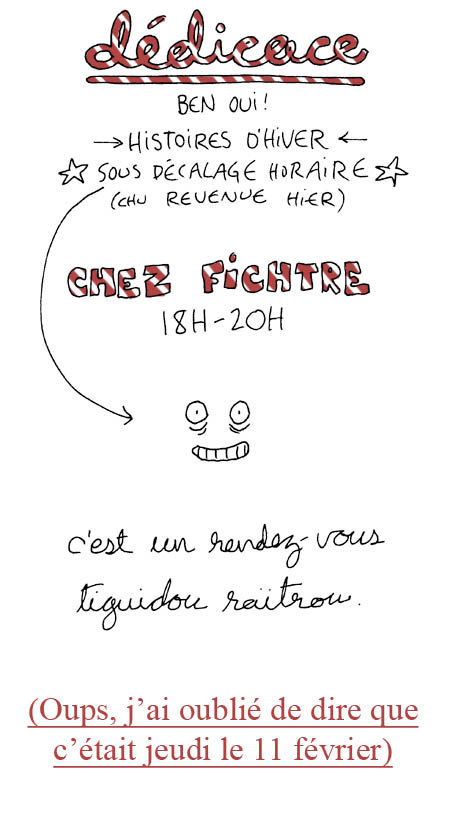 dédicace
BEN OUI!
→ HISTOIRES D'HIVER ←
☆ SOUS DÉCALAGE HORAIRE ☆
(CHU REVENUE HIER)
CHEZ FICHTRE
18H-20H
c'est un rendez-vous
tiguidou raïtrou.
(Oups, j’ai oublié de dire que
c’était jeudi le 11 février)